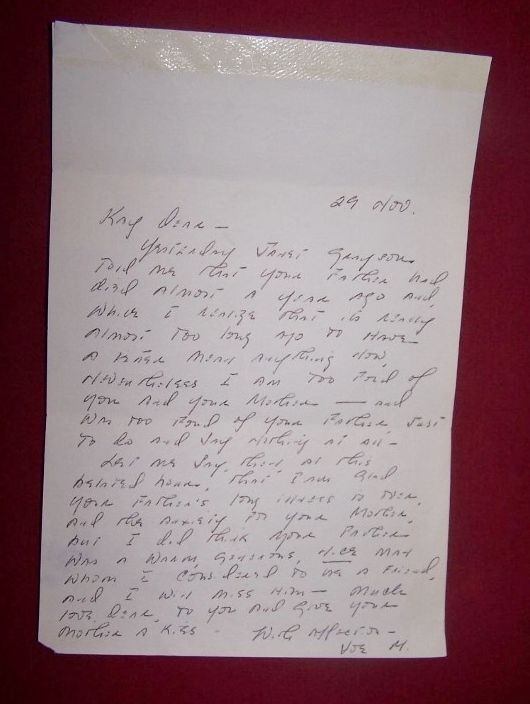 29 Nov.
Kay Dear —
Yesterday Janet Grayson
told me that your Father had
died almost a year ago and
while I realize that is really
almost too long ago to have
a letter mean anything now,
nevertheless I am too fond of
you and your Mother — and
was too fond of your Father, just
to do and say nothing at all —
Let me say, then, at this
belated hour, that I am glad
your Father's long illness is over,
and the anxiety for your Mother,
but I did think your Father
was a warm, generous, nice man
whom I considered to be a friend,
and I will miss him — Much
love, Dear, to you and give your
Mother a kiss — With affection —
Joe M.